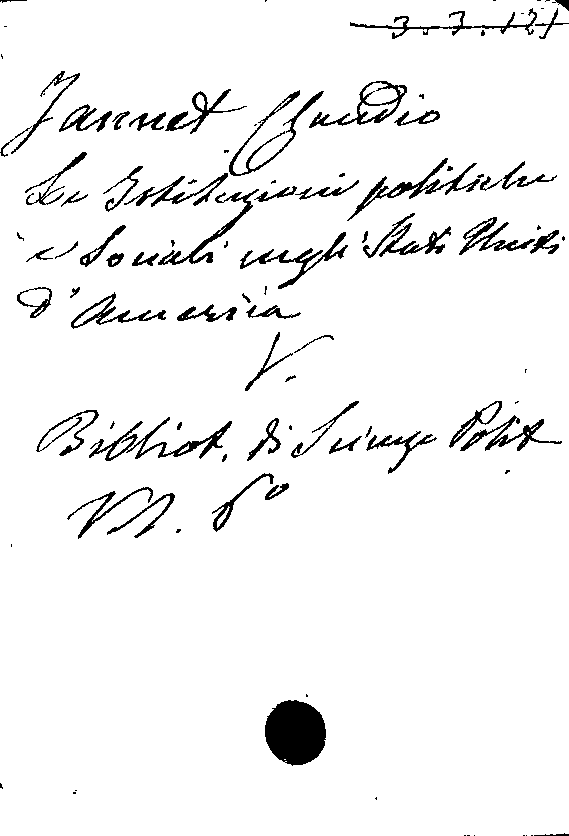 3.3.121
Jannet Claudio
Le Istituzioni politiche
e Sociali negli Stati Uniti
d'America
V.
Bibliot. di Scienze Polit
Vol. 6º